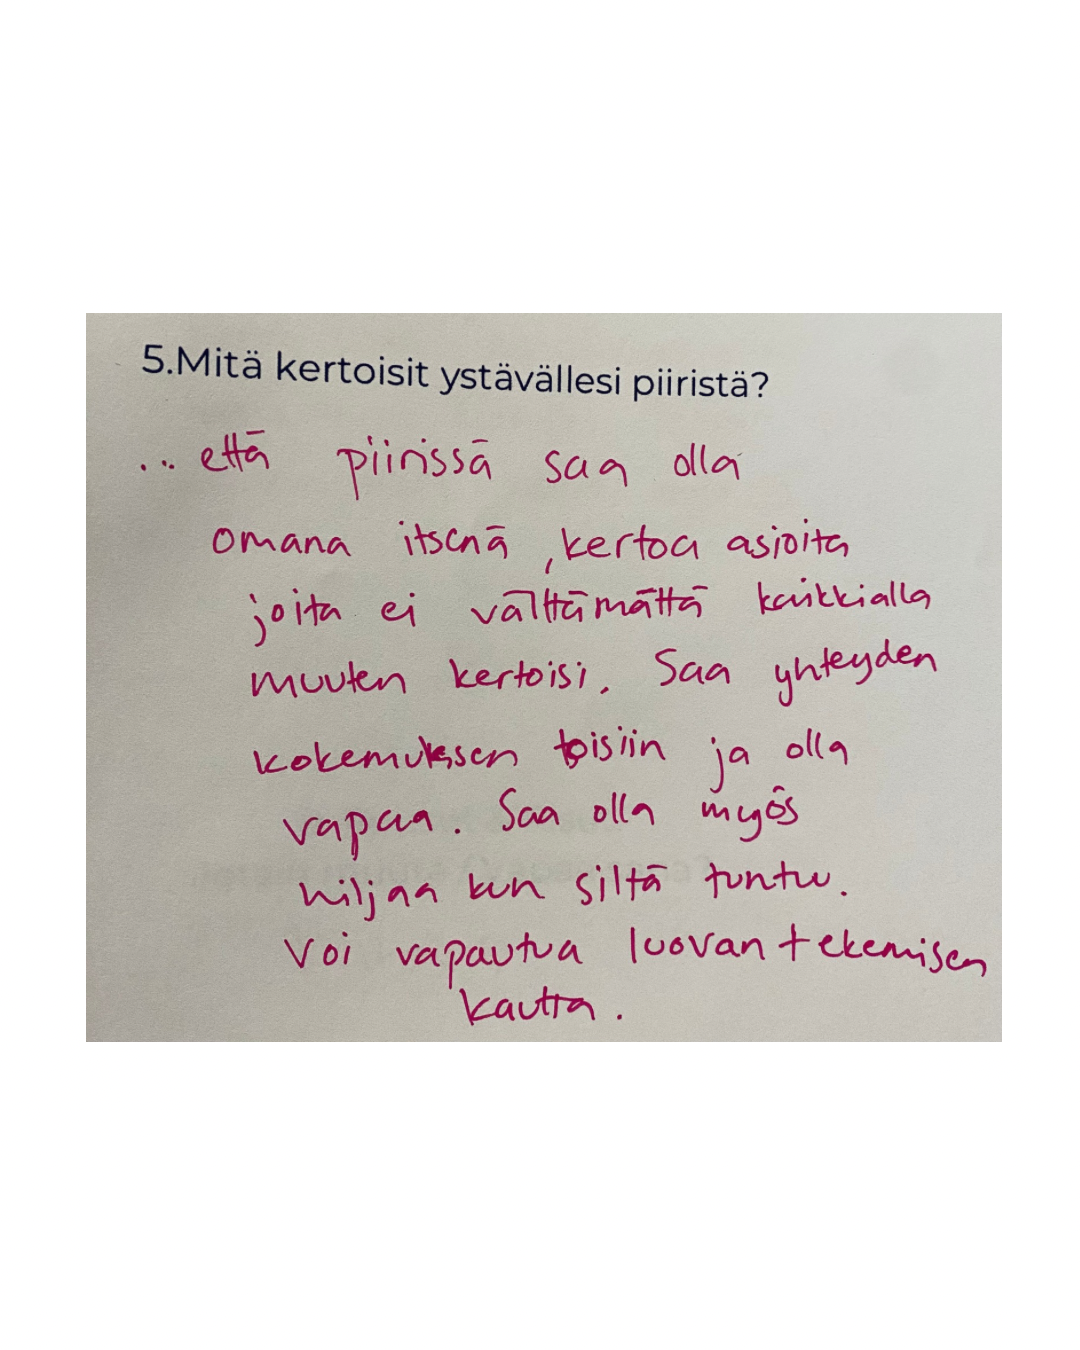 5.Mitä kertoisit ystävällesi piiristä?
... että piirissä saa olla
omana itsenä, kertoa asioita
joita ei välttämättä kaikkialla
muuten kertoisi. Saa yhteyden
kokemuksen toisiin ja olla
vapaa. Saa olla myös
hiljaa kun siltä tuntuu.
Voi vapautua luovan tekemisen
kautta.